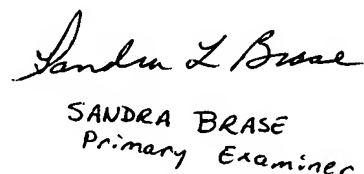 Sandra L Brase
SANDRA BRASE
Primary Examiner